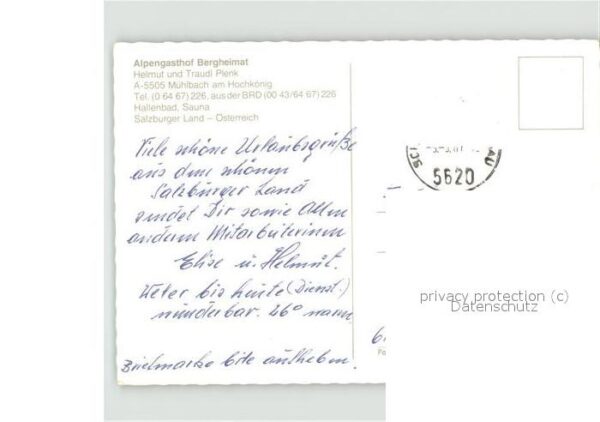 Alpengasthof Bergheimat
Helmut und Traudl Plenk
A-5505 Mühlbach am Hochkönig
Tel. (0 64 67) 226, aus der BRD (00 43/64 67) 226
Hallenbad, Sauna
Salzburger Land – Österreich
Viele schöne Urlaubsgrüße
aus dem schönen
Salzburger Land
sendet Dir sowie Allen
anderen Mitarbeiterinnen
Elise u. Helmut.
Weter bis heute (Dienst.)
wunderbar. 26° warm
Briefmarke bite aufheben.
5620
privacy protection (c)
Datenschutz